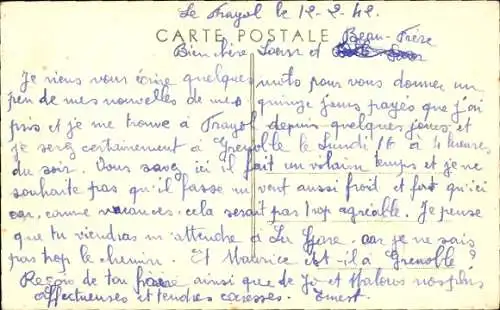 Le Trayol le 12-2-42.
CARTE POSTALE
Bien chère Soeur et Beau-Frère
Je viens vous écrire quelques mots pour vous donner un
peu de mes nouvelles de mes quinze jours payés que j'ai
pris et je me trouve à Trayol depuis quelques jours, et
je serai certainement à Grenoble le Lundi 16 à 4 heures
du soir. Vous savez ici il fait un vilain temps et je ne
souhaite pas qu'il fasse un vent aussi froid et fort qu'ici
car, comme vacances, cela serait pas trop agréable. Je pense
que tu viendras m'attendre à La Gare car je ne sais
pas trop le chemin. Et Maurice est-il à Grenoble?
Reçois de ton frère ainsi que de Jo et Malou nos plus
affectueuses et tendres caresses. Ernest.